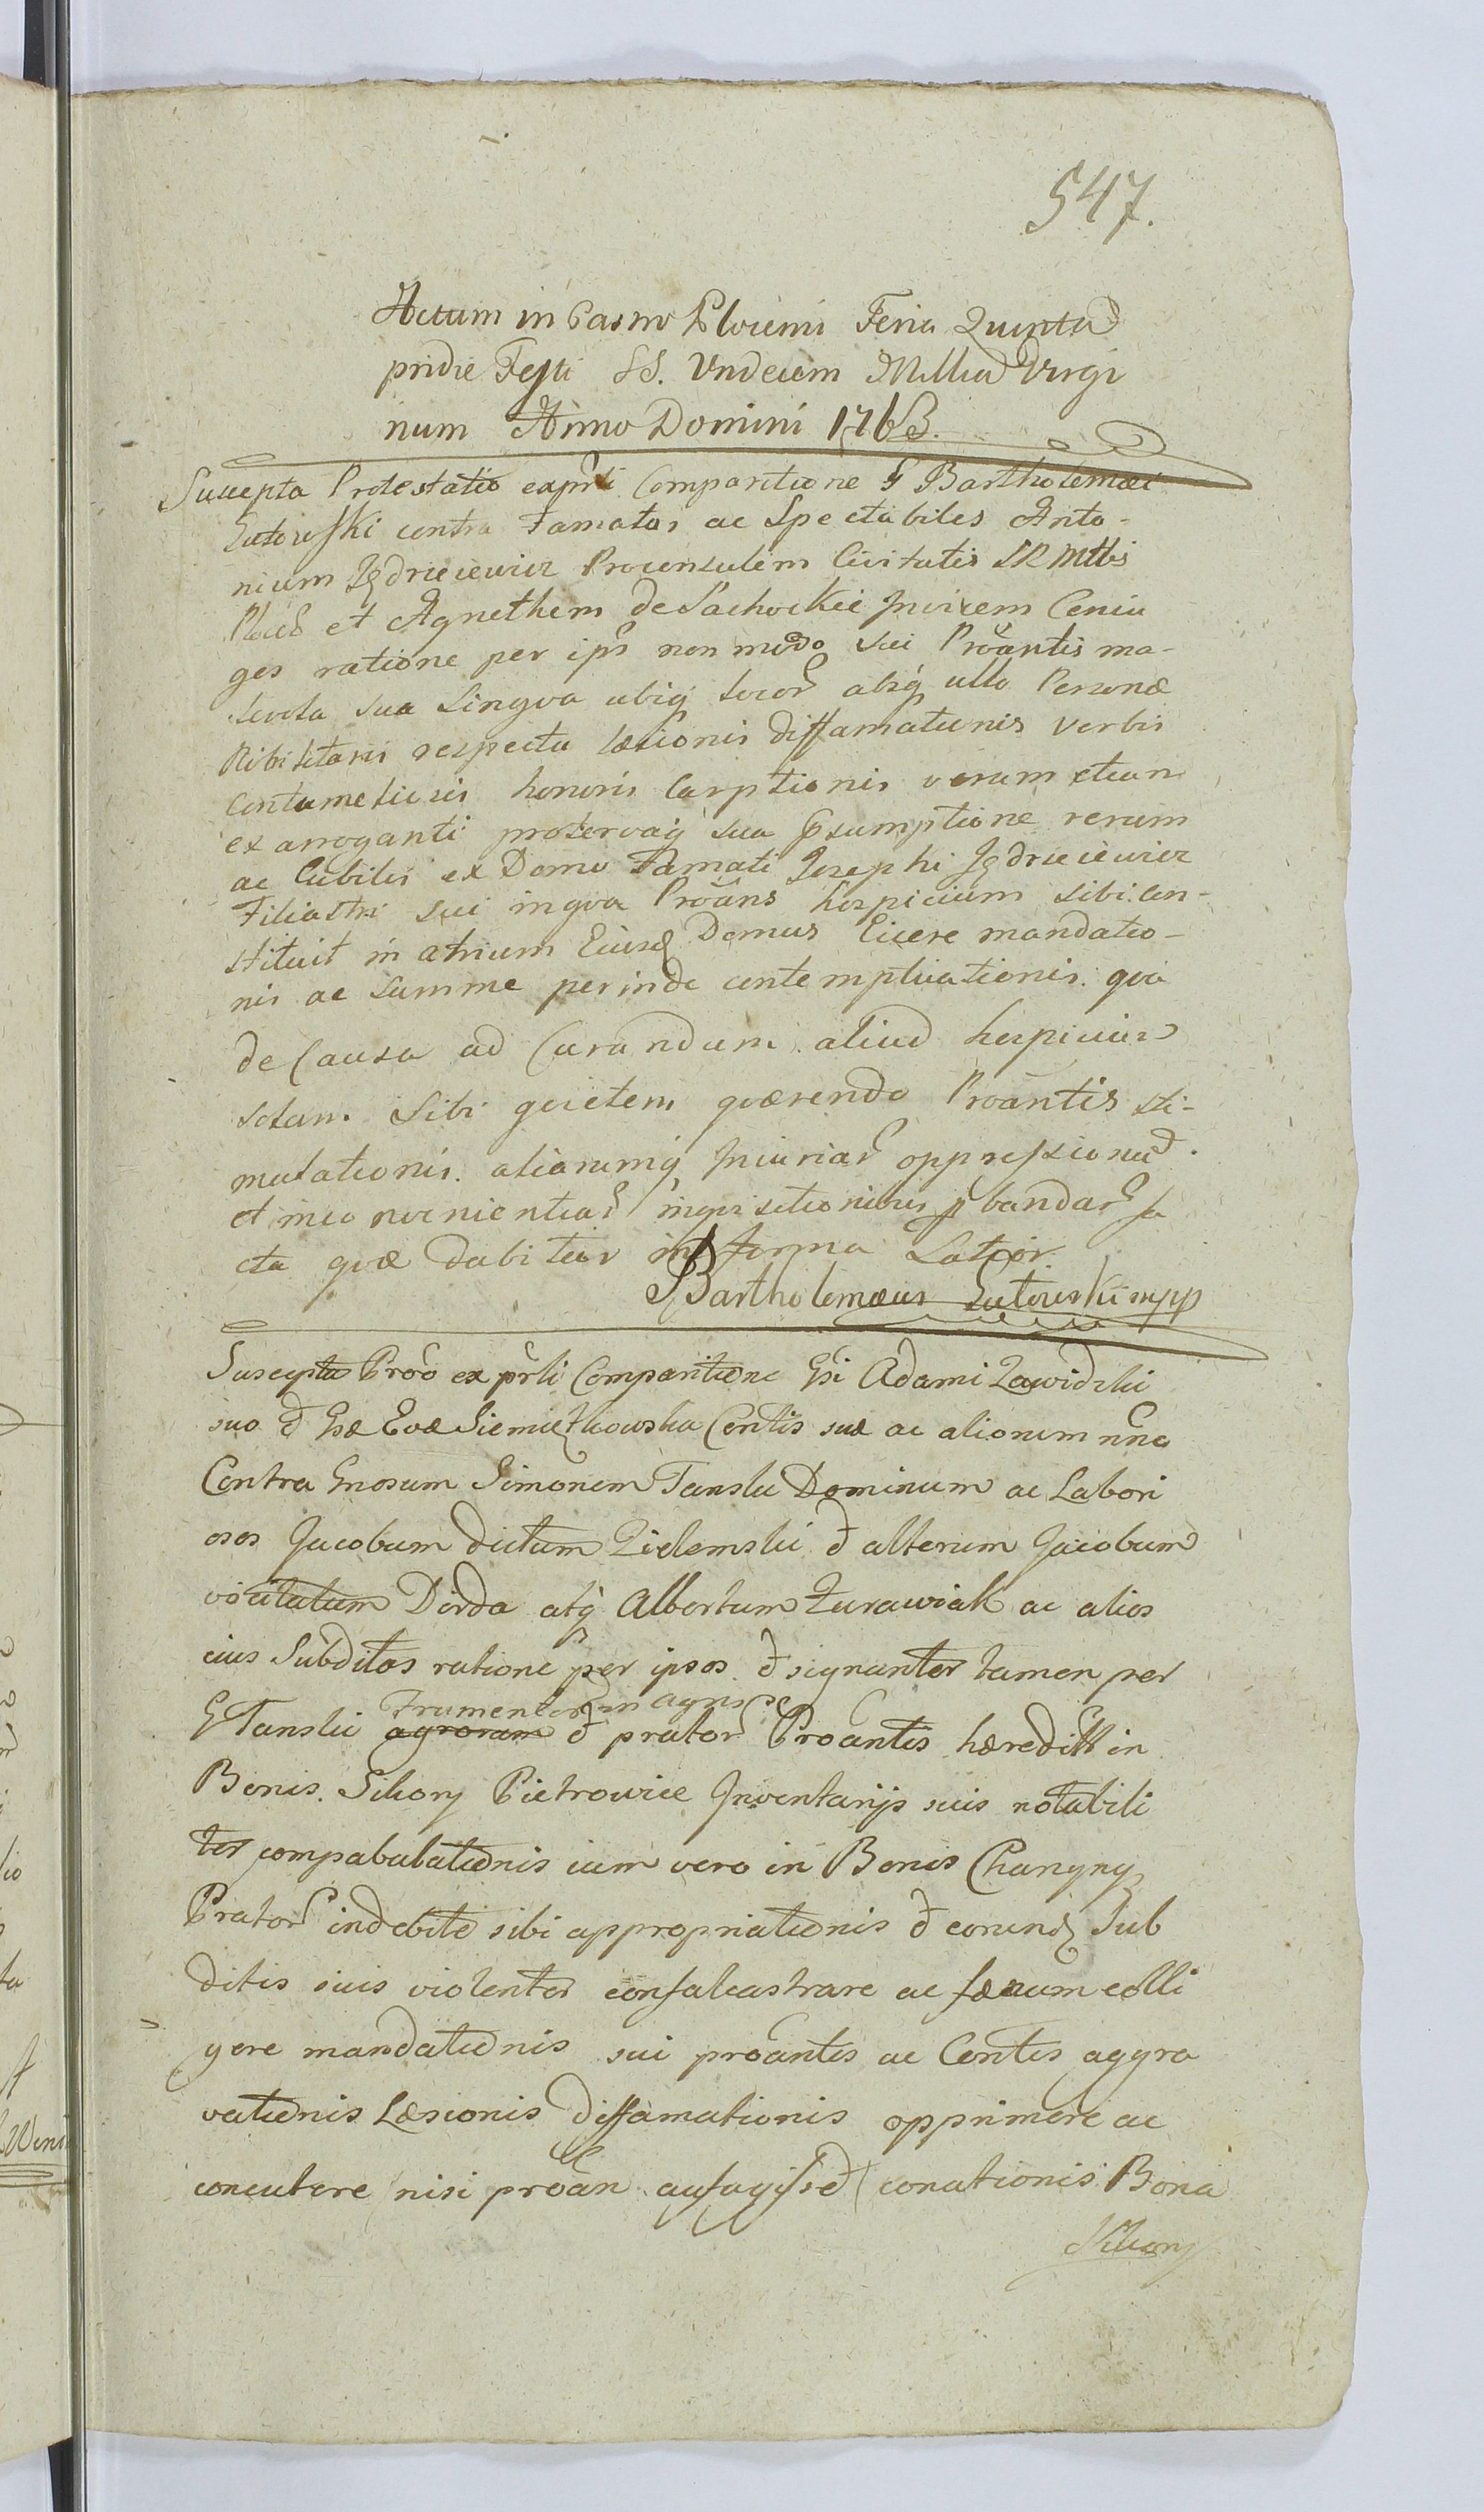 547.
Actum in Castro Plocensi Feria Quinta
pridie Festi SS. Undecim Millia Virgi
num Anno Domini 1763.
Suscepta Protestatio ex prti Comparitione G Bartholemæi
Lutowski contra Famatos ac Spectabiles Anto-
nium Jędrzeiewicz Proconsulem Civitatis SRMttis
Ploceñ et Agnethem de Lachockie Invicem Coniu
ges ratione per ips non modo sui Proantis ma-
levola sua Lingva ubiq locor absq ullo Personæ
Nibilitaris respectu læsionis diffamationis verbis
contumeliosis honoris Carptionis verum etiam
ex arroganti protervaq sua præsumptione rerum
ac Cubilis ex Domo Famati Josephi Jędrzeiewicz
Filiastri sui in qva Proans hospicium sibi con-
stituit in atrium Eiusd Domus Eicere mandatio-
nis ac summe perinde contemptuationis qva
de Causa ad Curandum aliud hospicium
solam sibi qvietem qværendo Proantis sti-
mulationis aliarumq Iniuriar oppressionu
et inconvenientiar inqvisitionibus pbandar fa
cta qvæ dabitur in forma Latior
Bartholemæus Lutowski mpp
Suscepta Proo ex prti Comparitione Gsi Adami Zawidzki
suo et Gsæ Evæ Siemiątkowska Contis suæ ac aliorum nne
Contra Gnosum Simonem Tanski Dominum ac Labori
osos Jacobum dictum Zielemski et alterum Jacobum
vocitatum Dirda atq Albertum Zurawiak ac alios
eius Subditos ratione per ipsos et signanter tamen per
Frumentor in agris
G Tanski agrorum et prator Proantis hæreditt in
Bonis Sikory Pietrowice Inventarijs suis notabili
ter compabulationis iam vero in Bonis Chanyny
Prator indebite sibi appropriationis et eorund Sub
ditis suis violenter confalcastrare ac fænum colli
gere mandationis sui proantis ac Contis aggra
vationis Læsionis diffamationis opprimere ac
concutere nisi proan aufugisset conationis Bona
Sikory